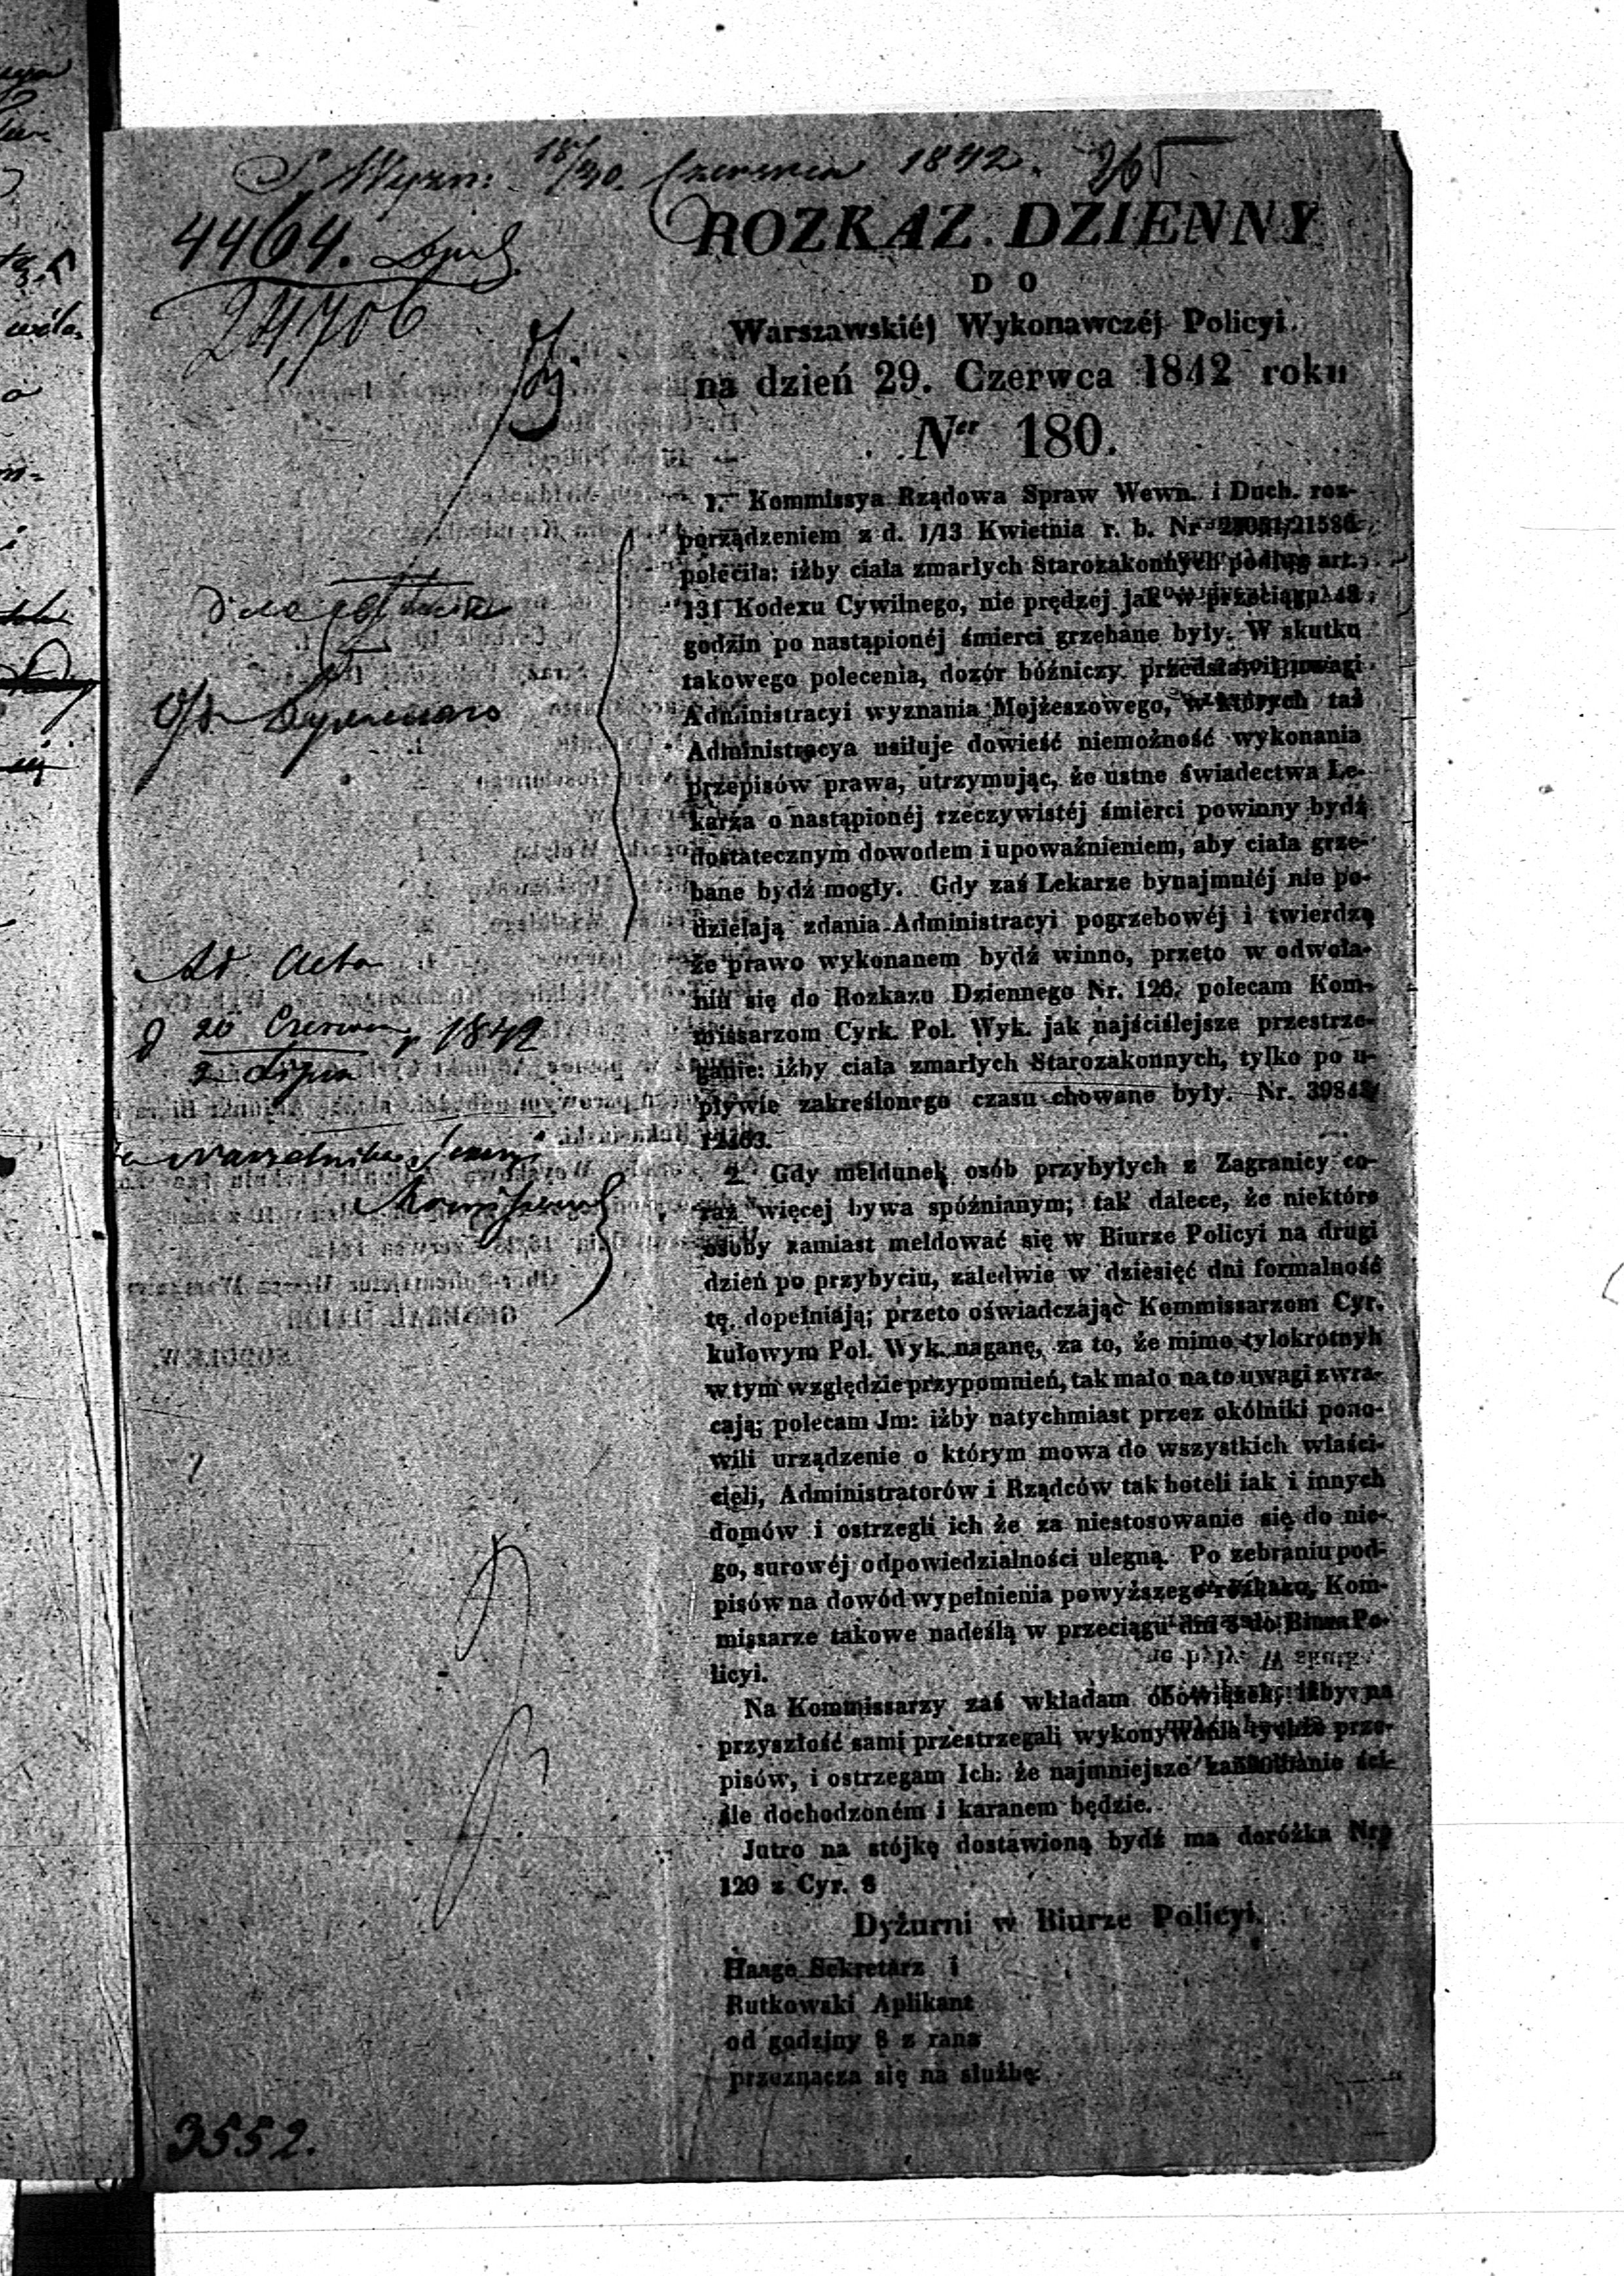 18/30. Czerwca 1842.
4464.
24,706
ROZKAZ DZIENNY
DO
Warszawskiéj Wykonawczéj Policyi
na dzień 29. Czerwca 1842 roku
Ner 180.
1. Kommissya Rządowa Spraw Wewn. i Duch. roz-
porządzeniem z d. 1/13 Kwietnia r. b. Nr
poleciła: iżby ciała zmarłych Starozakonnych podług art.
131 Kodexu Cywilnego, nie prędzej jak w przeciągu 48
godzin po nastąpionéj śmierci grzebane były. W skutku
takowego polecenia, dozór bóźniczy przedstawił uwagi
Administracyi wyznania Mojżeszowego, w których taż
Administracya usiłuje dowieść niemożność wykonania
przepisów prawa, utrzymując, że ustne świadectwa Le-
karza o nastąpionéj rzeczywistéj śmierci powinny bydź
dostatecznym dowodem i upoważnieniem, aby ciała grze-
bane bydź mogły. Gdy zaś Lekarze bynajmniéj nie po-
dzielają zdania Administracyi pogrzebowéj i twierdzą
że prawo wykonanem bydź winno, przeto w odwoła-
niu się do Rozkazu Dziennego Nr. 126. polecam Kom-
missarzom Cyrk. Pol. Wyk. jak najściślejsze przestrze-
ganie: iżby ciała zmarłych Starozakonnych, tylko po u-
pływie zakreślonego czasu chowane były. Nr.
2. Gdy meldunek osób przybyłych z Zagranicy co-
raz więcej bywa spóźnianym; tak dalece, że niektóre
osoby zamiast meldować się w Biurze Policyi na drugi
dzień po przybyciu, zaledwie w dziesięć dni formalność
tę dopełniają; przeto oświadczając Kommissarzom Cyr.
kułowym Pol. Wyk. naganę, za to, że mimo tylokrotnyh
w tym względzie przypomnień, tak mało na to uwagi zwra-
cają; polecam Jm: iżby natychmiast przez okólniki pono-
wili urządzenie o którym mowa do wszystkich właści-
cieli, Administratorów i Rządców tak hoteli iak i innych
domów i ostrzegli ich że za niestosowanie się do nie-
go, surowéj odpowiedzialności ulegną. Po zebraniu pod-
pisów na dowód wypełnienia powyższego rozkazu, Kom-
missarze takowe nadeślą w przeciągu dni 3 do Biura Po-
licyi.
Na Kommissarzy zaś wkładam obowiązek, iżby na
przyszłość sami przestrzegali wykonywania tychże prze-
pisów, i ostrzegam Ich: że najmniejsze zaniedbanie ści-
śle dochodzoném i karanem będzie.
Jutro na stójkę dostawioną bydź ma doróżka Nro
120 z Cyr. 8
Dyżurni w Biurze Policyi.
Haage Sekretarz i
Rutkowski Aplikant
od godziny 8 z rana
przeznacza się na służbę:
Ad Acta
d 20 Czerwca 1842
2 Lipca
3552.